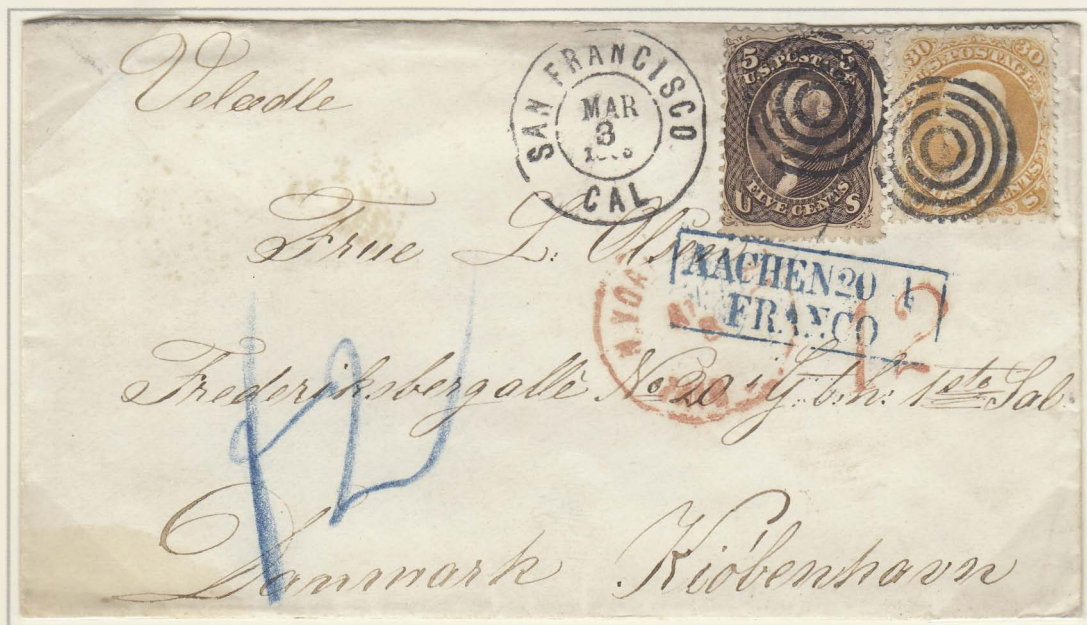 Veladle
SAN FRANCISCO
MAR
3
CAL
5 5
U.S. POSTAGE
U S
FIVE CENTS
30 30
U.S. POSTAGE
CENTS
Frue L. Olsen
AACHEN 20
FRANCO
12
N. YOR
Frederiksbergallé No 20 1ste Sal
12
Danmark Kiöbenhavn